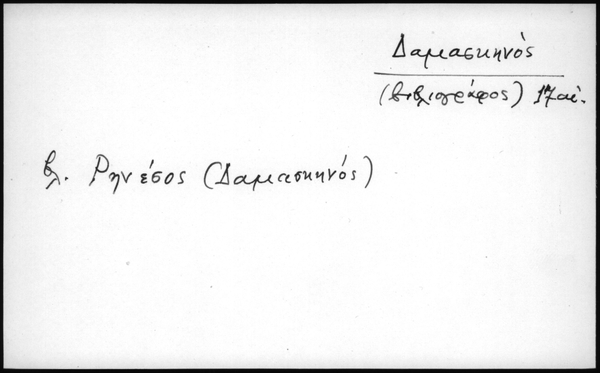 Δαμασκηνός
(βιβλιογράφος) 17 αἰ.
βλ. Ρηνέσος (Δαμασκηνός)